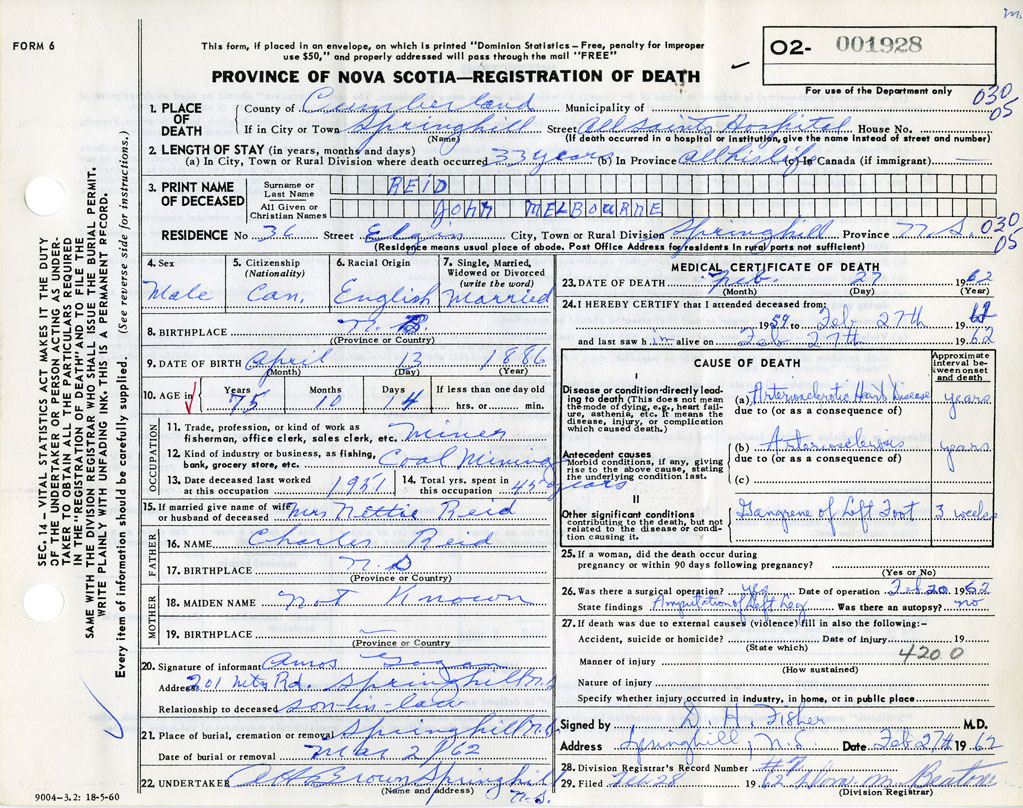 m.
FORM 6
This form, if placed in an envelope, on which is printed "Dominion Statistics – Free, penalty for improper
use $50," and properly addressed will pass through the mail "FREE"
PROVINCE OF NOVA SCOTIA—REGISTRATION OF DEATH
O2- 001928
For use of the Department only
030
05
1. PLACE OF DEATH
County of Cumberland Municipality of
If in City or Town Springhill Street All Saints Hospital House No.
(Name) (If death occurred in a hospital or institution, give the name instead of street and number)
2. LENGTH OF STAY (in years, months and days)
(a) In City, Town or Rural Division where death occurred 33 years (b) In Province All his life (c) In Canada (if immigrant) —
3. PRINT NAME OF DECEASED
Surname or Last Name REID
All Given or Christian Names JOHN MELBOURNE
RESIDENCE No 36 Street Elgin City, Town or Rural Division Springhill Province N.S. 030
05
(Residence means usual place of abode. Post Office Address for residents in rural parts not sufficient)
4. Sex
Male
5. Citizenship
(Nationality)
Can.
6. Racial Origin
English
7. Single, Married, Widowed or Divorced
(write the word)
Married
8. BIRTHPLACE N.B.
(Province or Country)
9. DATE OF BIRTH April 13 1886
(Month) (Day) (Year)
10. AGE in Years 75 Months 10 Days 14 If less than one day old
hrs. or min.
OCCUPATION
11. Trade, profession, or kind of work as
fisherman, office clerk, sales clerk, etc. Miner
12. Kind of industry or business, as fishing,
bank, grocery store, etc. Coal Mining
13. Date deceased last worked
at this occupation 1951
14. Total yrs. spent in
this occupation 45 years
15. If married give name of wife
or husband of deceased Mrs Nettie Reid
FATHER
16. NAME Charles Reid
17. BIRTHPLACE N.S
(Province or Country)
MOTHER
18. MAIDEN NAME Not Known
19. BIRTHPLACE —
(Province or Country
20. Signature of informant Amos
Address 201 Rd. Springhill N.S
Relationship to deceased son-in-law
21. Place of burial, cremation or removal Springhill N.S.
Date of burial or removal Mar 2/62
22. UNDERTAKER Brown Springhill
(Name and address) N.S.
9004-3.2: 18-5-60
MEDICAL CERTIFICATE OF DEATH
23. DATE OF DEATH Feb. 27 1962
(Month) (Day) (Year)
24. I HEREBY CERTIFY that I attended deceased from:
1959 to Feb 27th 1962
and last saw him alive on Feb 27th 1962
CAUSE OF DEATH
Approximate interval between onset and death
I
Disease or condition directly leading to death (This does not mean the mode of dying, e.g., heart failure, asthenia, etc. It means the disease, injury, or complication which caused death.)
(a) Arteriosclerotic Heart Disease years
due to (or as a consequence of)
Antecedent causes
Morbid conditions, if any, giving rise to the above cause, stating the underlying condition last.
(b) Arteriosclerosis years
due to (or as a consequence of)
(c)
II
Other significant conditions
contributing to the death, but not related to the disease or condition causing it.
Gangrene of Left Foot 3 weeks
25. If a woman, did the death occur during
pregnancy or within 90 days following pregnancy?
(Yes or No)
26. Was there a surgical operation? yes Date of operation Feb 20 1962
State findings Amputation of Left Leg Was there an autopsy? no
27. If death was due to external causes (violence) fill in also the following:-
Accident, suicide or homicide? Date of injury 19
(State which)
420.0
Manner of injury
(How sustained)
Nature of injury
Specify whether injury occurred in industry, in home, or in public place
Signed by D. H. Fisher M.D.
Address Springhill, N.S. Date Feb 27th 1962
28. Division Registrar's Record Number
29. Filed Feb 28 1962 Beaton
(Division Registrar)
SEC. 14 – VITAL STATISTICS ACT MAKES IT THE DUTY
OF THE UNDERTAKER OR PERSON ACTING AS UNDER-
TAKER TO OBTAIN ALL THE PARTICULARS REQUIRED
IN THE "REGISTRATION OF DEATH" AND TO FILE THE
SAME WITH THE DIVISION REGISTRAR WHO SHALL ISSUE THE BURIAL PERMIT.
WRITE PLAINLY WITH UNFADING INK. THIS IS A PERMANENT RECORD.
Every item of information should be carefully supplied. (See reverse side for instructions.)